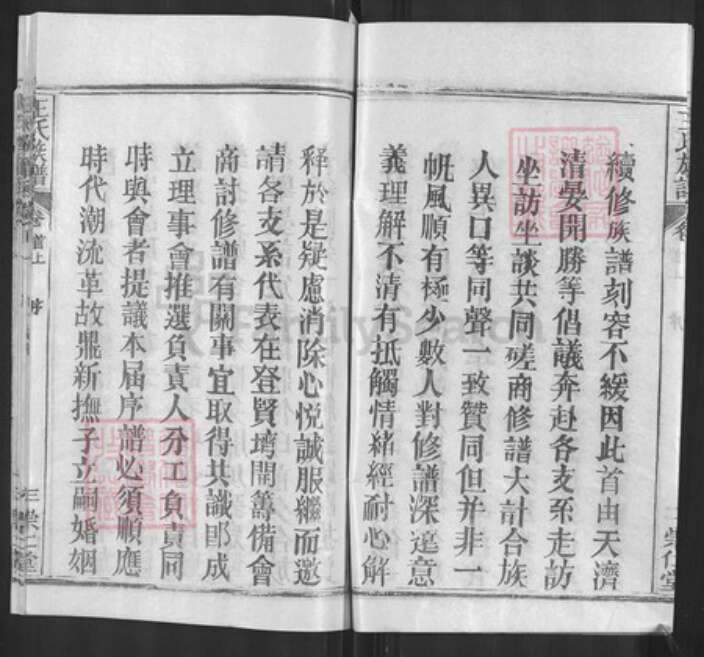 續修族譜刻容不緩因此首由天濟
清晏開勝等倡議奔赴各支系走訪
坐訪坐談共同磋商修譜大計合族
人異口等同聲一致贊同但並非一
帆風順有極少數人對修譜深遠意
義理解不清有抵觸情緒經耐心解
王氏族譜
卷首上
序
三槐堂
釋於是疑慮消除心悅誠服繼而邀
請各支系代表在登賢塆開籌備會
商討修譜有關事宜取得共識即成
立理事會推選負責人分工負責同
時與會者提議本届序譜必須順應
時代潮流革故鼎新撫子立嗣婚姻
FamilySearch